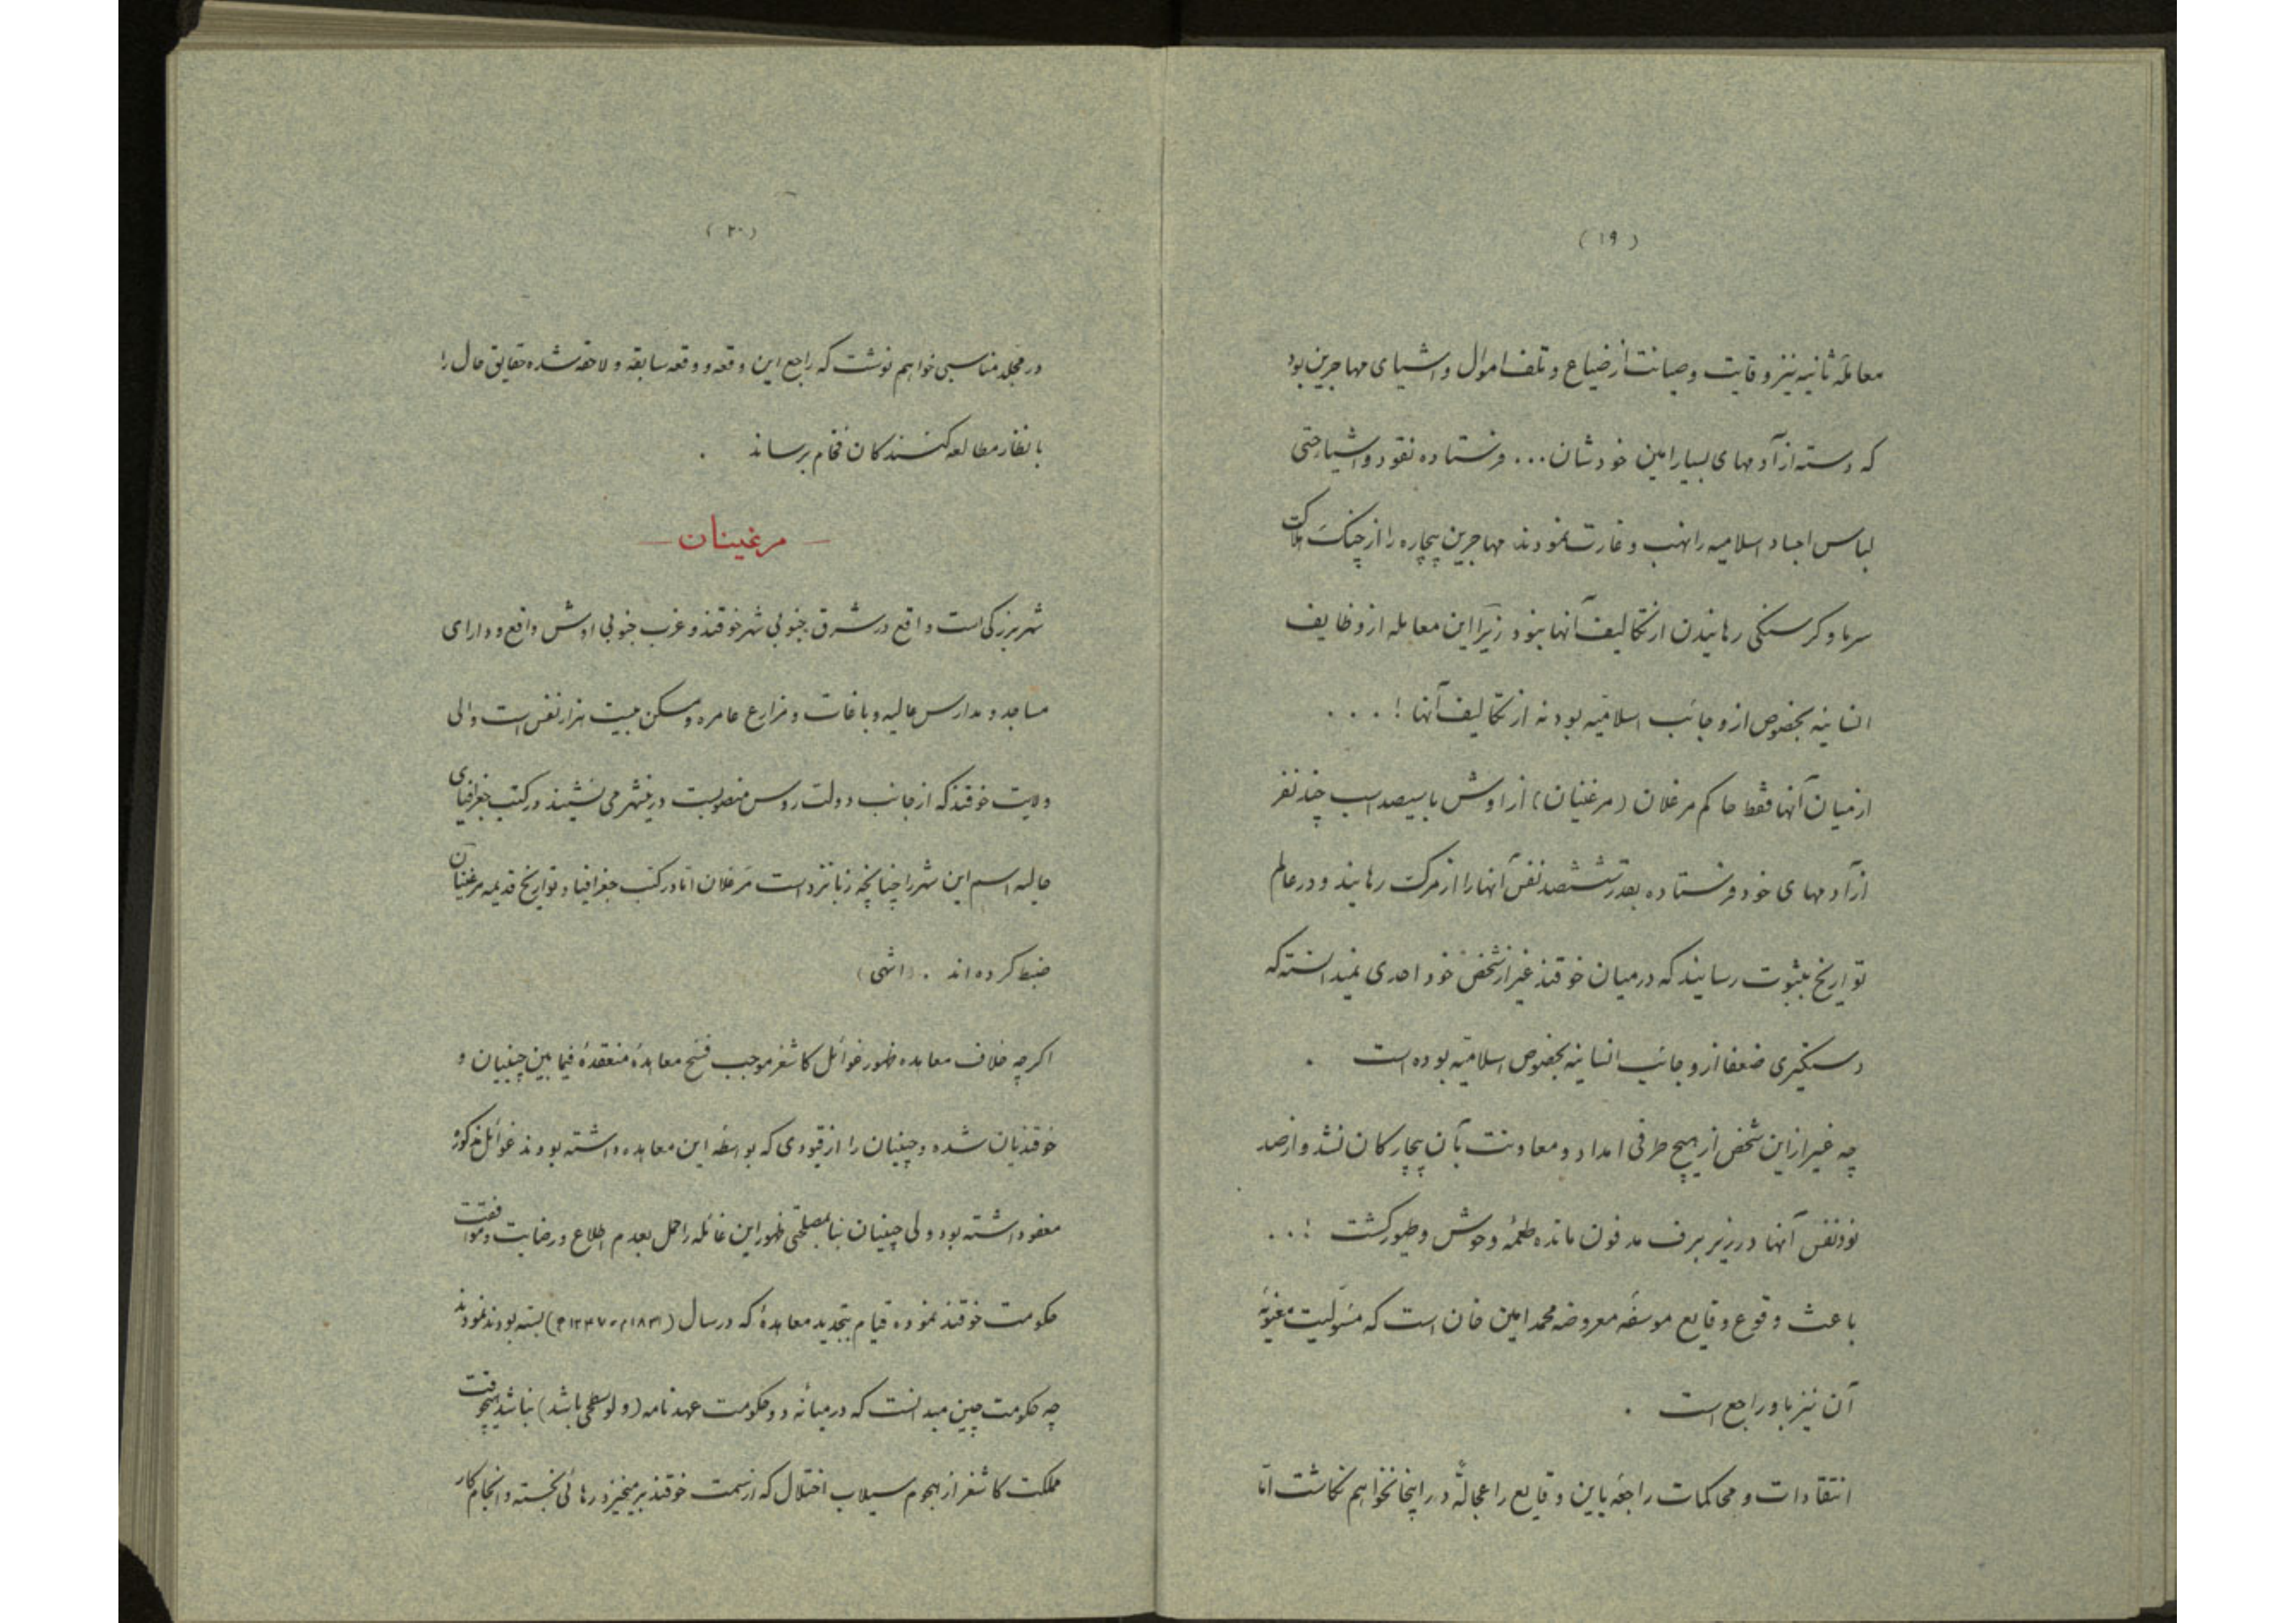 (۱۹)
معاملهٔ ثانیه نیز وقایت وصیانت از ضیاع و تلف اموال واشیای مهاجرین بود
که دسته از آدمهای بسیار امین خودشان... فرستاده نقود واشیا حتی
لباس اجساد اسلامیه را نهب وغارت نمودند مهاجرین بیچاره را از چنک هلاکت
سرما وکرسنکی رهانیدن از تکالیف آنها نبود زیرا این معامله از وظایف
انسانیه بخصوص از وجائب اسلامیه بود نه از تکالیف آنها !...
از میان آنها فقط حاکم مرغلان (مرغنیان) از اوش با سیصد اسب چند نفر
از آدمهای خود فرستاده بقدر ششصد نفس آنها را از مرکت رهانید و در عالم
تواریخ بثبوت رسانید که در میان خوقند غیر از شخص خود احدی نمیدانسته که
دستکیری ضعفا از وجائب انسانیه بخصوص اسلامیه بوده است .
چه غیر از این شخص از هیچ طرفی امداد و معاونت بآن بیچارکان نشد و از صد
نود نفس آنها در زیر برف مدفون مانده طعمهٔ وحوش وطیور کشت !...
باعث وقوع وقایع موسفهٔ معروضه محمد امین خان است که مسولیت معنویهٔ
آن نیز باو راجع است .
انتقادات و محاکمات راجعه باین وقایع را عجالةً در اینجا نخواهم نکاشت امّا
(۲۰)
در محلّ مناسبی خواهم نوشت که راجع این وقعه و وقعه سابقه و لاحقه شده حقایق حال را
بانظار مطالعه کنندکان فخام برساند .
— مرغینان —
شهر بزرکی است واقع در شرق جنوبی شهر خوقند و غرب جنوبی اوش واقع و دارای
مساجد و مدارس عالیه و باغات و مزارع عامره و مسکن بیست هزار نفس است والی
ولایت خوقند که از جانب دولت روس منصوبست در ینشهر می نشیند در کتب جغرافیای
حالیه اسم این شهر را چنانچه زبانزد است مَرغلان امّا در کتب جغرافیا و تواریخ قدیمه مرغنیان
ضبط کرده اند . (انتهی)
اکرچه خلاف معاهده ظهور غوائل کاشغر موجب فسخ معاهدهٔ منعقدهٔ فیما بین چینیان و
خوقندیان شده و چینیان را از قیودی که بواسطه این معاهده داشته بودند غوائل مذکوره
معفو داشته بود ولی چینیان بنا بمصلحتی ظهور این غائله را حمل بعدم اطلاع و رضایت وموافقت
حکومت خوقند نموده قیام بتجدید معاهدهٔ که در سال (۱۸۳۱م - ۱۲۴۷ه) بسته بودند نمودند
چه حکومت چین میدانست که در میانه دو حکومت عهدنامه (و لو سطحی باشد) نباشد هیچوقت
مملکت کاشغر از هجوم سیلاب اختلال که از سمت خوقند بر میخیزد رهائی نجسته و انجام کار